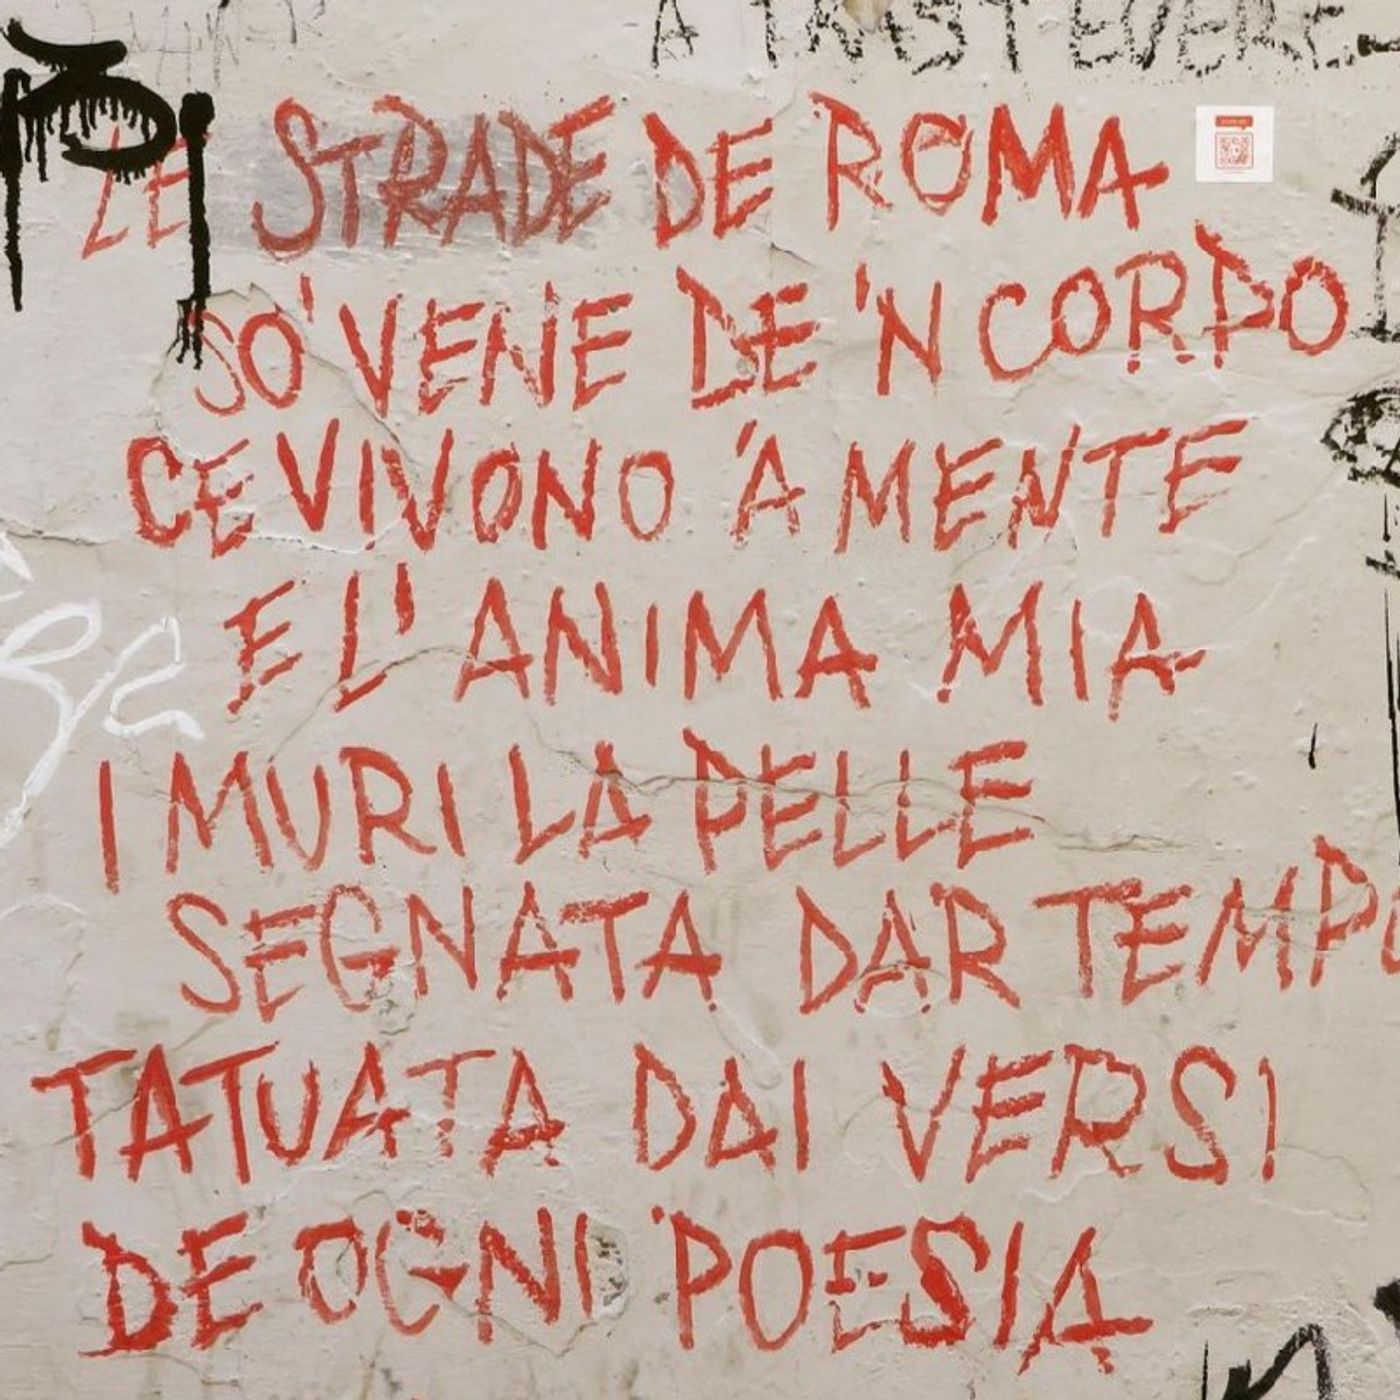 A TRASTEVERE
LE STRADE DE ROMA
SO' VENE DE 'N CORPO
CE VIVONO 'A MENTE
E L'ANIMA MIA
I MURI LA PELLE
SEGNATA DAR TEMPO
TATUATA DAI VERSI
DE OGNI POESIA